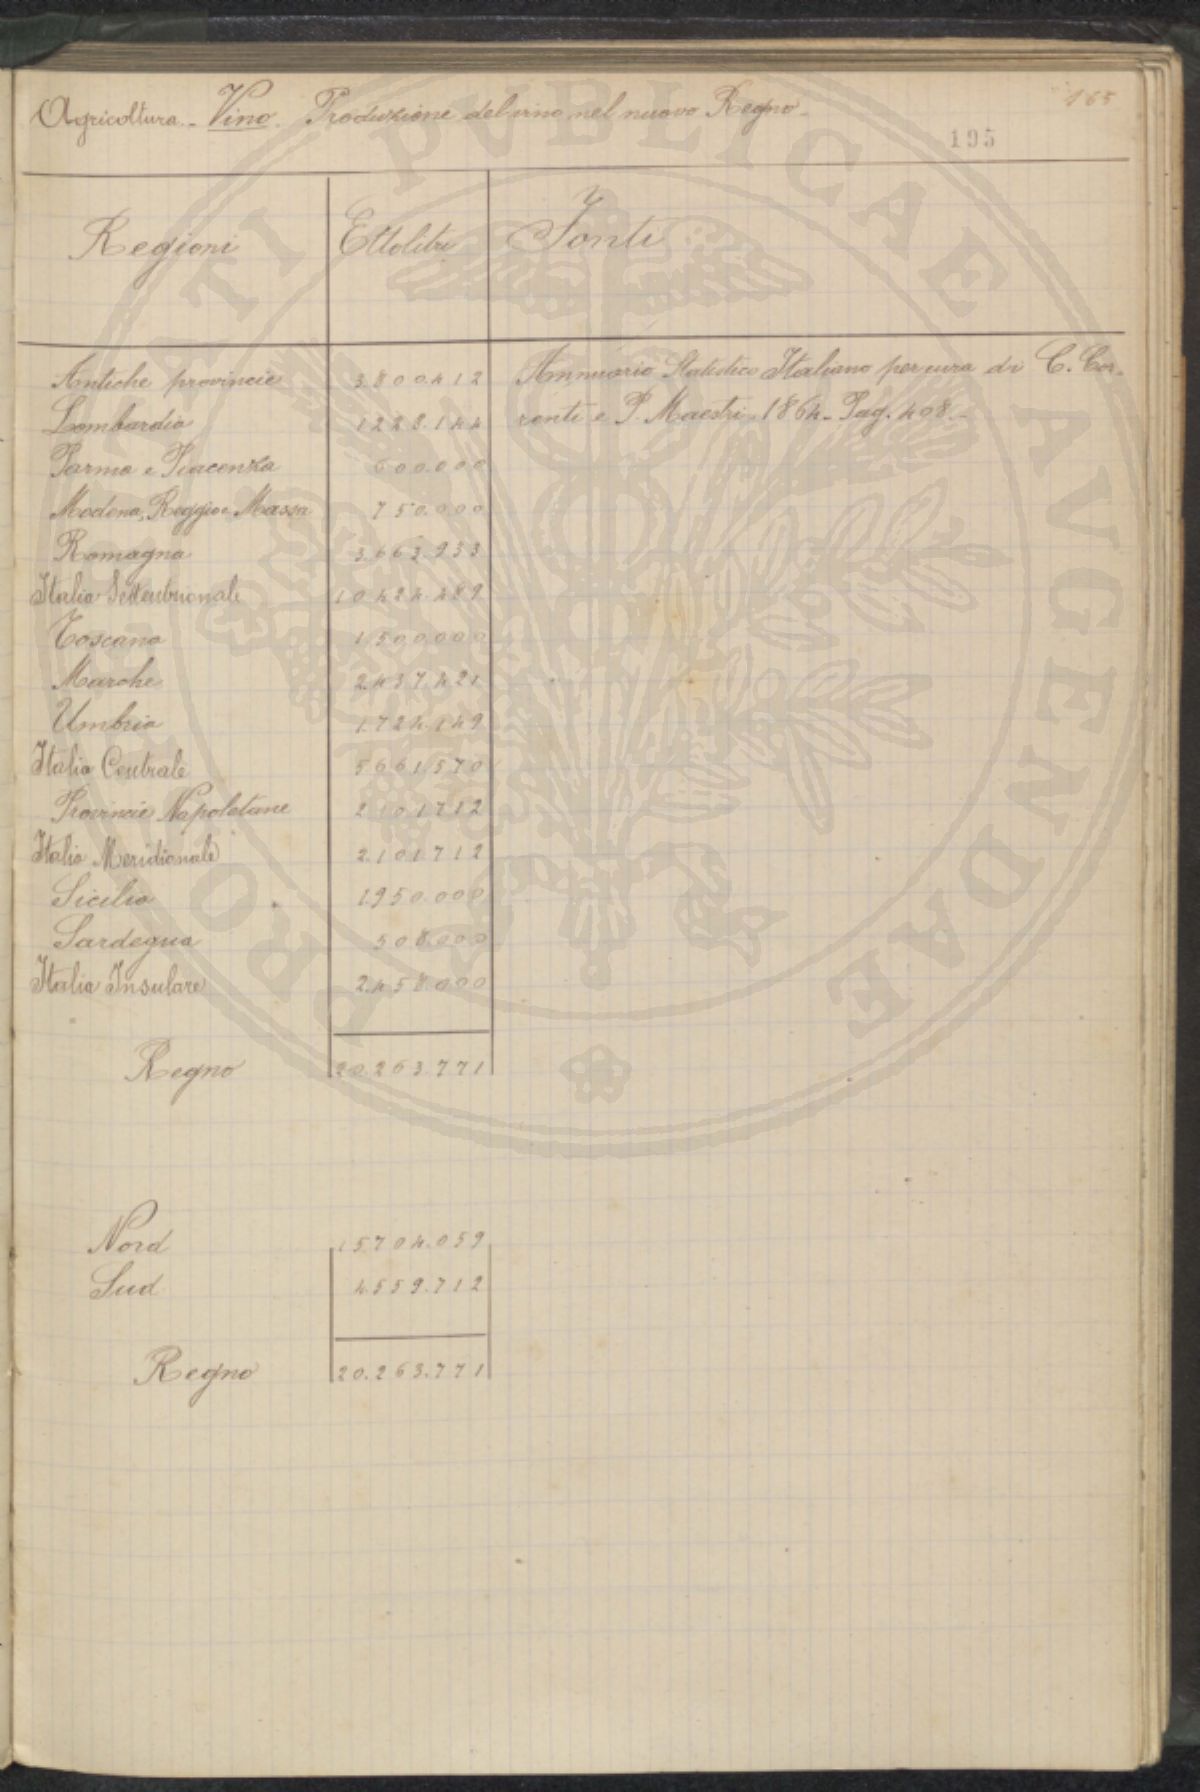 Agricoltura. - Vino. Produzione del vino nel nuovo Regno.
165
195
Regioni Ettolitri Fonti
Antiche provincie 3.800.412 Annuario Statistico Italiano per cura di C. Cor-
Lombardia 1.228.144 renti e P. Maestri. 1864. Pag. 408. -
Parma e Piacenza 600.000
Modena, Reggio e Massa 750.000
Romagna 3.663.933
Italia Settentrionale 10.424.489
Toscana 1.500.000
Marche 2.437.421
Umbria 1.724.149
Italia Centrale 5.661.570
Provincie Napoletane 2.101.712
Italia Meridionale 2.101.712
Sicilia 1.950.000
Sardegna 508.000
Italia Insulare 2.458.000
Regno 20.263.771
Nord 15.704.059
Sud 4.559.712
Regno 20.263.771
PROBITATI PUBLICAE AUGENDAE